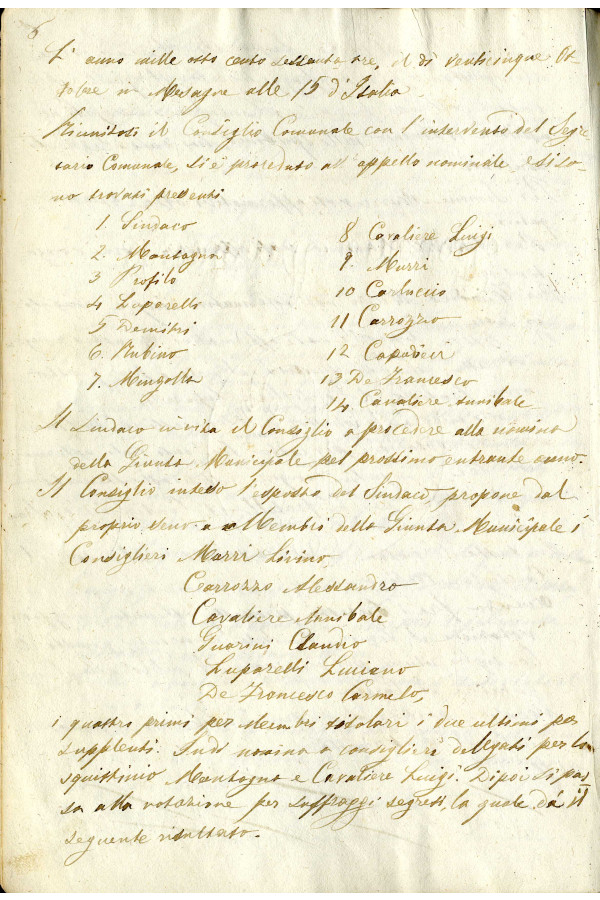 6
L' anno mille otto cento sessanta tre, il dì venticinque Ot-
tobre in Mesagne alle 15 d'Italia.
Riunitosi il Consiglio Comunale con l'intervento del Segre
tario Comunale, si è proceduto all' appello nominale e si so-
no trovati presenti
1. Sindaco
2. Montagna
3 Profilo
4 Luparelli
5 Demitri
6. Rubino
7. Mingolla
8 Cavaliere Luigi
9. Murri
10 Carluccio
11 Carrozzo
12 Capodieci
13 De Francesco
14. Cavaliere Annibale
Il Sindaco invita il Consiglio a procedere alla nomina
della Giunta Municipale pel prossimo entrante anno.
Il Consiglio inteso l'esposto del Sindaco, propone dal
proprio seno a Membri della Giunta Municipale i
Consiglieri Murri Livino,
Carrozzo Alessandro
Cavaliere Annibale
Guarini Claudio
Luparelli Luciano
De Francesco Carmelo,
i quattro primi per Membri titolari i due ultimi per
supplenti. Indi nomina a consiglieri delegati per lo
squittinio Montagna e Cavaliere Luigi. Dipoi si pas-
sa alla votazione per suffraggi segreti, la quale dà il
seguente risultato.